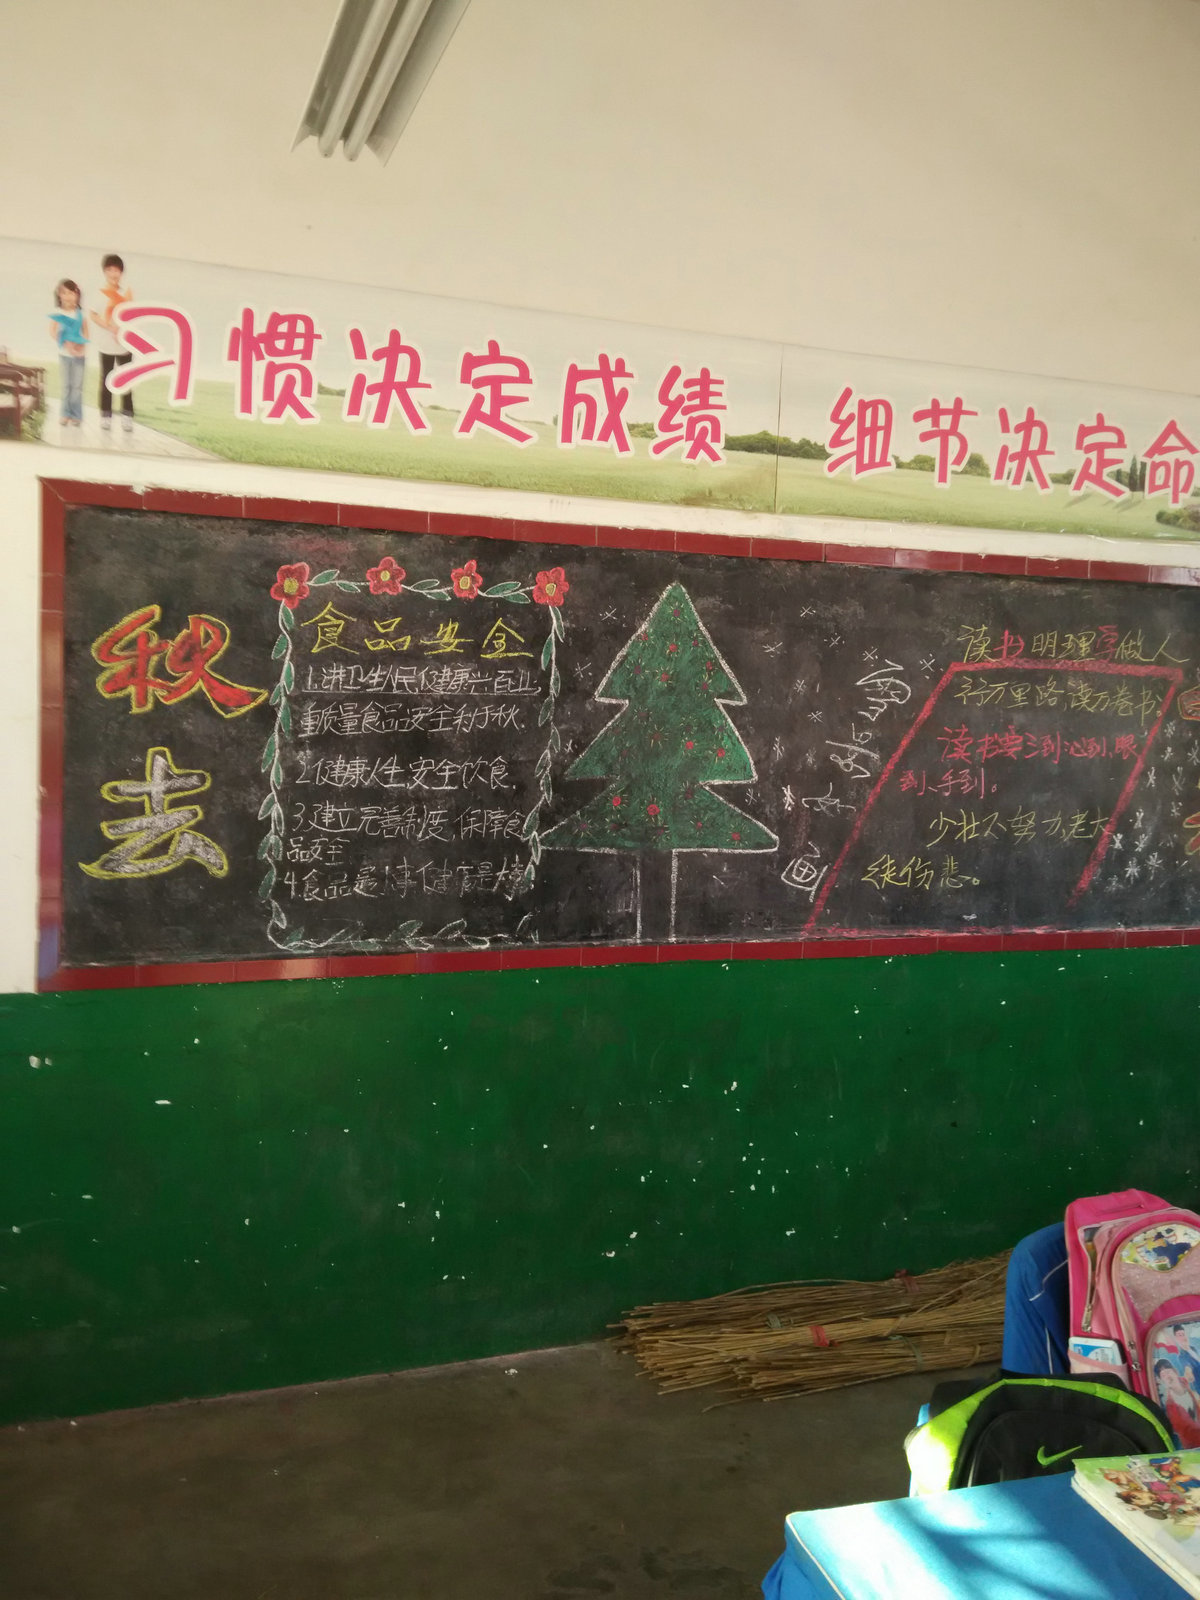 习惯决定成绩 细节决定命
秋
去
食品安全
1.讲卫生人民健康兴百业,
重质量食品安全利千秋.
2.健康人生,安全饮食.
3.建立完善制度,保障食
品安全.
4.食品是
读书明理学做人
行万里路,读万卷书。
读书要三到心到、眼
到、手到。
少壮不努力,老大
徒伤悲。